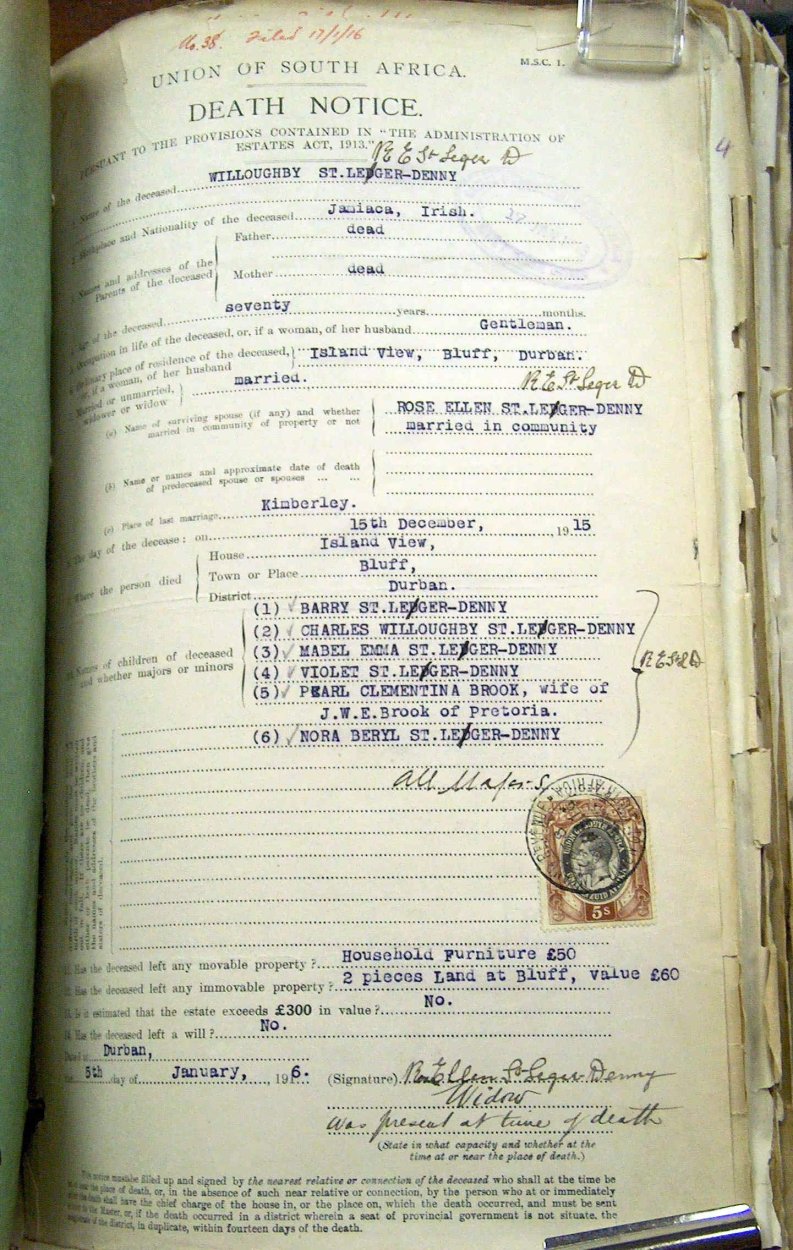 No. 38. Filed 17/1/16
M.S.C. 1.
UNION OF SOUTH AFRICA.
DEATH NOTICE.
PURSUANT TO THE PROVISIONS CONTAINED IN "THE ADMINISTRATION OF
ESTATES ACT, 1913."
R E St Leger D
4
Name of the deceased WILLOUGHBY ST.LEDGER-DENNY
Birthplace and Nationality of the deceased Jamiaca, Irish.
Names and addresses of the Parents of the deceased
Father dead
Mother dead
of the deceased seventy years months.
Occupation in life of the deceased, or, if a woman, of her husband Gentleman.
Ordinary place of residence of the deceased, or, if a woman, of her husband Island View, Bluff, Durban.
Married or unmarried, widower or widow married.
R E St Leger D
(a) Name of surviving spouse (if any) and whether married in community of property or not
ROSE ELLEN ST.LEDGER-DENNY
married in community
(b) Name or names and approximate date of death
of predeceased spouse or spouses ... ...
(c) Place of last marriage Kimberley.
The day of the decease: on 15th December, 1915
Where the person died
House Island View,
Town or Place Bluff,
District Durban.
Names of children of deceased
and whether majors or minors
(1) BARRY ST.LEDGER-DENNY
(2) CHARLES WILLOUGHBY ST.LEDGER-DENNY
(3) MABEL EMMA ST.LEDGER-DENNY
(4) VIOLET ST.LEDGER-DENNY
(5) PEARL CLEMENTINA BROOK, wife of
J.W.E.Brook of Pretoria.
(6) NORA BERYL ST.LEDGER-DENNY
R E St L D
All Majors
5s
Has the deceased left any movable property? Household Furniture £50
Has the deceased left any immovable property? 2 pieces Land at Bluff, value £60
Is it estimated that the estate exceeds £300 in value? No.
Has the deceased left a will? No.
Dated at Durban,
5th day of January, 1916.
(Signature) Rose Ellen St Leger Denny
Widow
Was present at time of death
(State in what capacity and whether at the
time at or near the place of death.)
notice must be filled up and signed by the nearest relative or connection of the deceased who shall at the time be
the place of death, or, in the absence of such near relative or connection, by the person who at or immediately
the death shall have the chief charge of the house in, or the place on, which the death occurred, and must be sent
to the Master, or, if the death occurred in a district wherein a seat of provincial government is not situate, the
of the district, in duplicate, within fourteen days of the death.